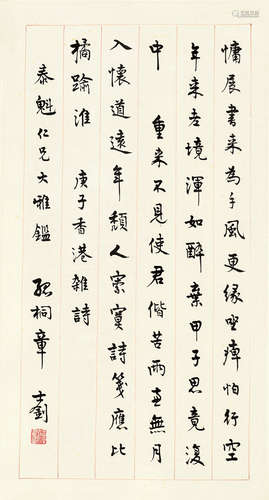 慵展書來為手風更緣坐痺怕行空
年來老境渾如醉棄甲于思竟復
中 重來不見使君偕苦雨直無月
入懷道遠年頹人寂寞詩箋應比
橘踰淮 庚子香港雜詩
泰魁仁兄大雅鑑 孤桐章士釗